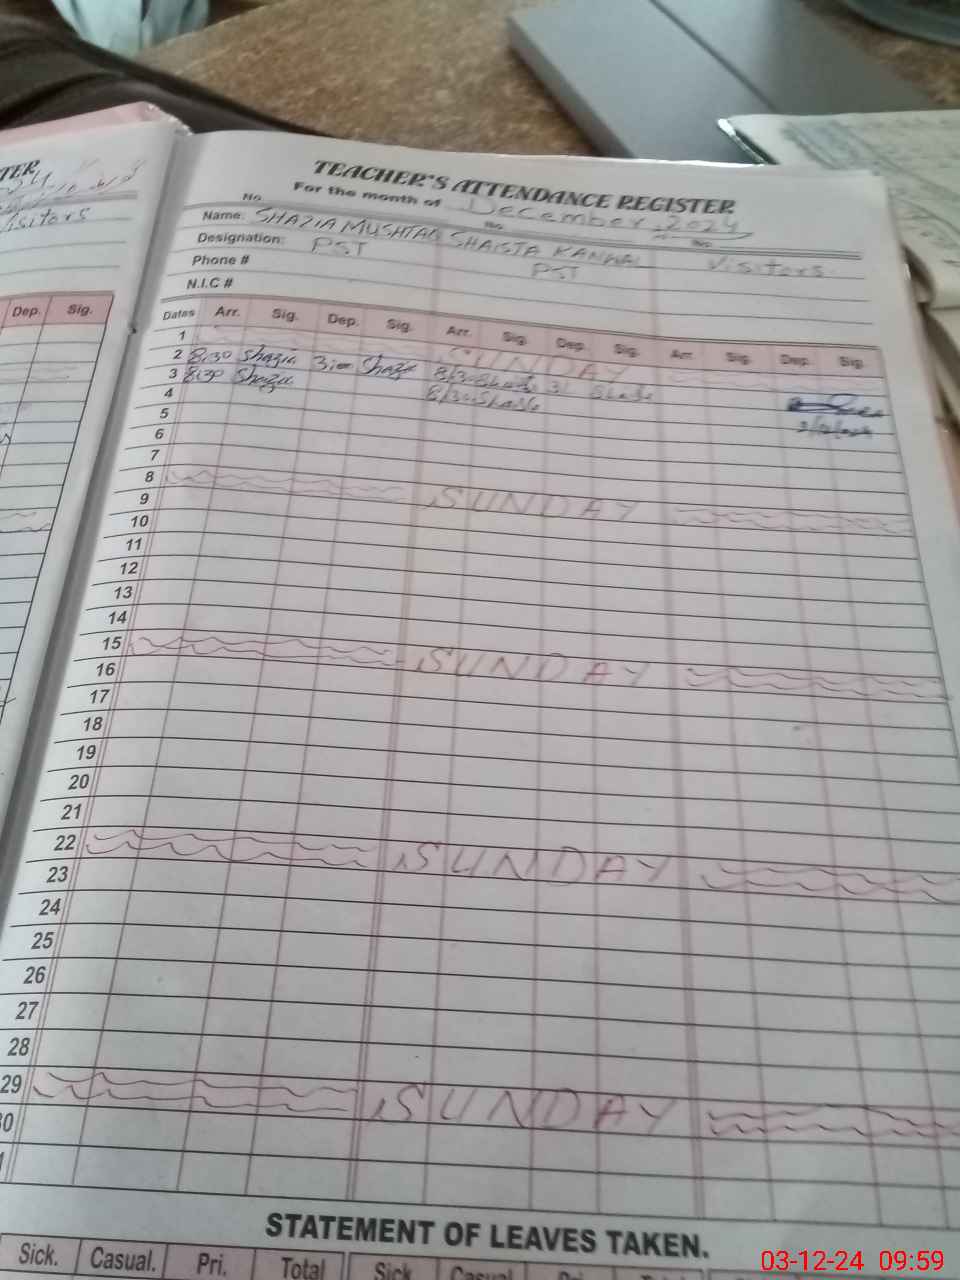 TER
Visitors
Dep. Sig.
TEACHER'S ATTENDANCE REGISTER
For the month of December, 2024
No. No. No.
Name: SHAZIA MUSHTAQ SHAISTA KANWAL Visitors
Designation: PST PST
Phone #
N.I.C #
Dates Arr. Sig. Dep. Sig. Arr. Sig. Dep. Sig. Arr. Sig. Dep. Sig.
1 SUNDAY
2 8:30 Shazia Shazia
3 8:30 Shazia 8:30
4
5
6
7
8 SUNDAY
9
10
11
12
13
14
15 SUNDAY
16
17
18
19
20
21
22 SUNDAY
23
24
25
26
27
28
29 SUNDAY
30
1
STATEMENT OF LEAVES TAKEN.
Sick. Casual. Pri. Total Sick Casual
03-12-24 09:59